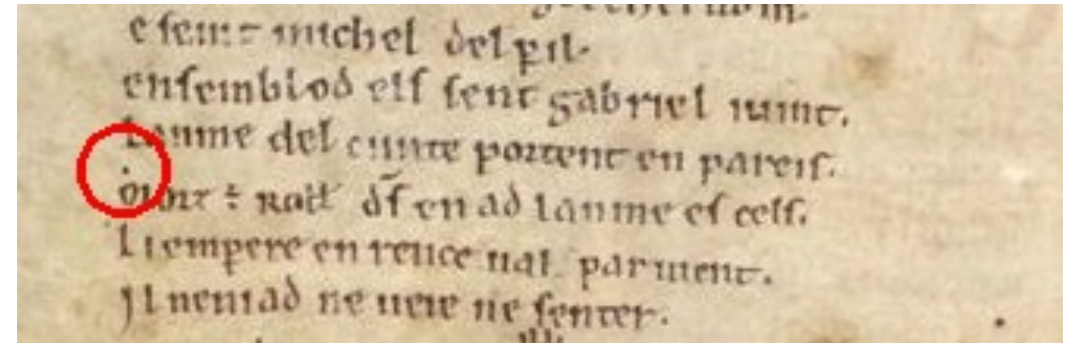 e seint michel del ꝑil.
ensemblod els sent gabriel iuint.
Lanme del cunte portent en pareis.
Morz ÷ Roll' d̄s en ad lanme es cels.
Li empere en rence ual paruient.
Jl neniad ne ueie ne senter.